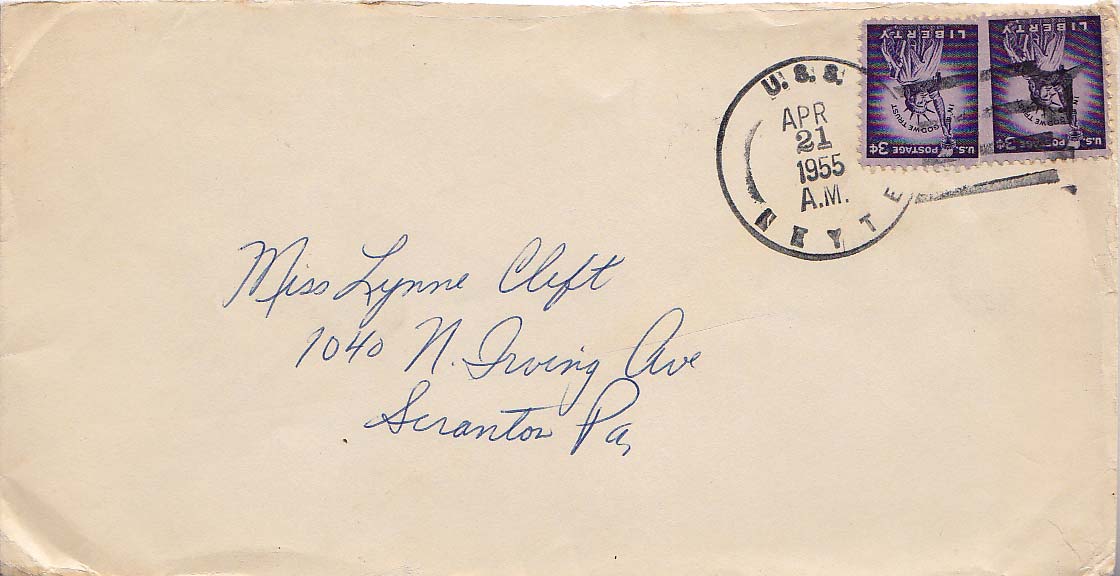 U.S.S.
APR
21
1955
A.M.
LIBERTY
IN GOD WE TRUST
U.S. POSTAGE 3¢
LIBERTY
IN GOD WE TR
U.S. POSTAGE 3¢
Miss Lynne Clift
1040 N. Irving Ave
Scranton Pa,